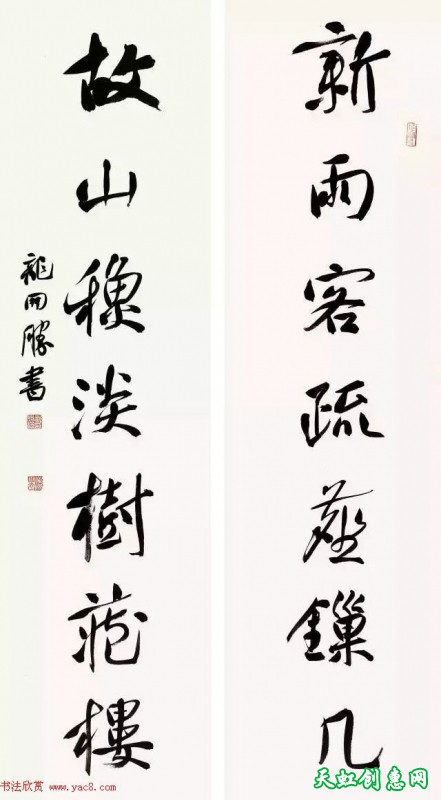 新雨客疏塵鏁几
故山穐淡樹藏樓
龍開勝書
书法欣赏 www.yac8.com
天虹创惠网